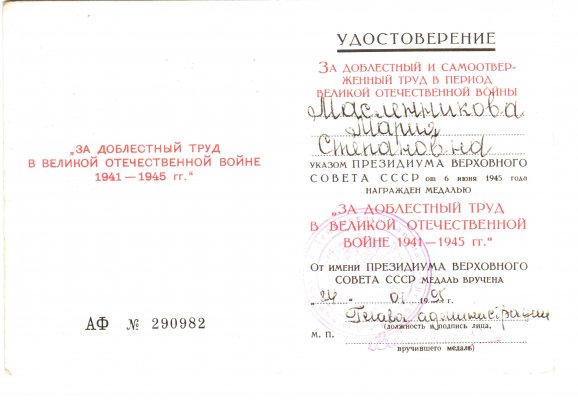 „ЗА ДОБЛЕСТНЫЙ ТРУД
В ВЕЛИКОЙ ОТЕЧЕСТВЕННОЙ ВОЙНЕ
1941 — 1945 гг.“
АФ № 290982
УДОСТОВЕРЕНИЕ
ЗА ДОБЛЕСТНЫЙ И САМООТВЕР-
ЖЕННЫЙ ТРУД В ПЕРИОД
ВЕЛИКОЙ ОТЕЧЕСТВЕННОЙ ВОЙНЫ
Масленникова
Мария
Степановна
УКАЗОМ ПРЕЗИДИУМА ВЕРХОВНОГО
СОВЕТА СССР от 6 июня 1945 года
НАГРАЖДЕН МЕДАЛЬЮ
„ЗА ДОБЛЕСТНЫЙ ТРУД
В ВЕЛИКОЙ ОТЕЧЕСТВЕННОЙ
ВОЙНЕ 1941 — 1945 гг.“
От имени ПРЕЗИДИУМА ВЕРХОВНОГО
СОВЕТА СССР МЕДАЛЬ ВРУЧЕНА
„24“ 01 1995 г.
Глава администрации
(должность и подпись лица,
М. П.
вручившего медаль)